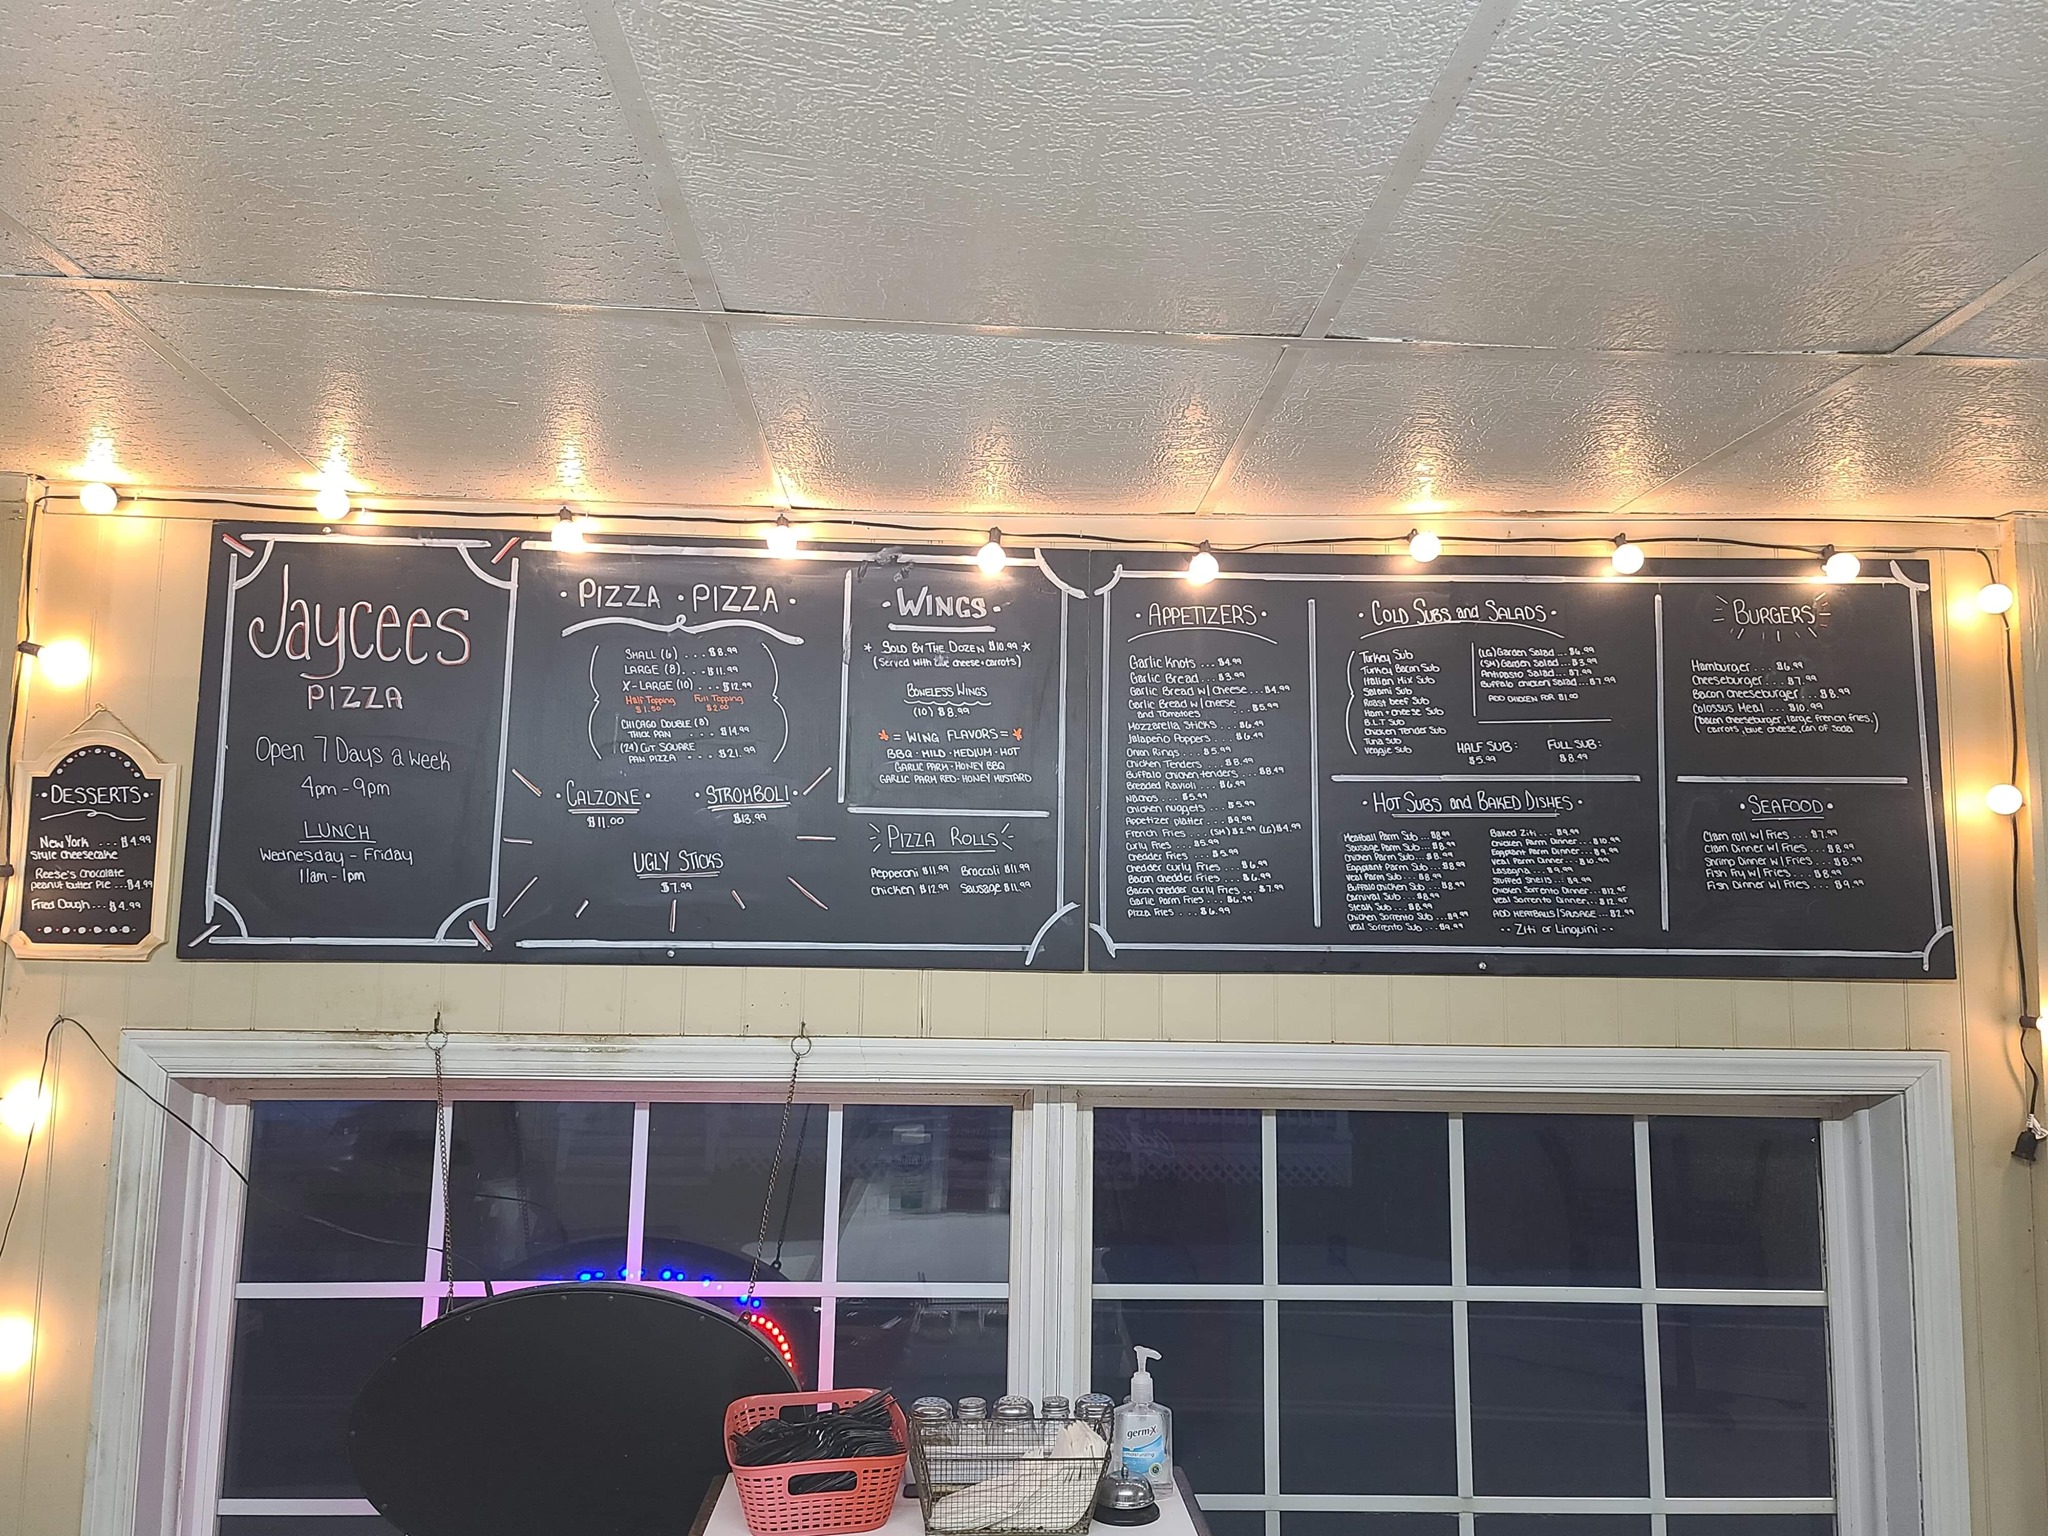 DESSERTS
New York ... $4.99
Style cheesecake
Reese's chocolate
peanut butter Pie ... $4.99
Fried Dough ... $4.99
Jaycees
PIZZA
Open 7 Days a week
4pm - 9pm
LUNCH
Wednesday - Friday
11am - 1pm
PIZZA · PIZZA
SMALL (6) ... $8.99
LARGE (8) ... $11.99
X-LARGE (10) ... $12.99
Half Topping Full Topping
$1.50 $2.00
CHICAGO DOUBLE (8)
THICK PAN ... $14.99
(24) CUT SQUARE
PAN PIZZA ... $21.99
CALZONE
$11.00
STROMBOLI
$13.99
UGLY STICKS
$7.99
WINGS
* SOLD BY THE DOZEN $10.99 *
(Served with blue cheese + carrots)
BONELESS WINGS
(10) $8.99
= WING FLAVORS =
BBQ · MILD · MEDIUM · HOT
GARLIC PARM · HONEY BBQ
GARLIC PARM RED · HONEY MUSTARD
PIZZA ROLLS
Pepperoni $11.99 Broccoli $11.99
Chicken $12.99 Sausage $11.99
APPETIZERS
Garlic Knots ... $4.99
Garlic Bread ... $3.99
Garlic Bread w/ cheese ... $4.99
Garlic Bread w/ cheese
and Tomatoes ... $5.99
Mozzarella Sticks ... $6.49
Jalapeño Poppers ... $6.49
Onion Rings ... $5.99
Chicken Tenders ... $8.49
Buffalo chicken tenders ... $8.49
Breaded Ravioli ... $6.99
Nachos ... $5.99
Chicken nuggets ... $5.99
Appetizer platter ... $9.99
French Fries ... (SM) $2.99 (LG) $4.99
Curly Fries ... $5.99
Chedder Fries ... $5.99
Chedder curly Fries ... $6.99
Bacon chedder Fries ... $6.99
Bacon chedder curly Fries ... $7.99
Garlic Parm Fries ... $6.99
Pizza Fries ... $6.99
COLD SUBS and SALADS
Turkey Sub
Turkey Bacon Sub
Italian Mix Sub
Salami Sub
Roast beef Sub
Ham + cheese Sub
B.L.T Sub
Chicken Tender Sub
Tuna Sub
Veggie Sub
(LG) Garden Salad ... $6.99
(SM) Garden Salad ... $3.99
Antipasto Salad ... $7.99
Buffalo chicken Salad ... $7.99
ADD CHICKEN FOR $1.00
HALF SUB: FULL SUB:
$5.99 $8.49
HOT SUBS and BAKED DISHES
Meatball Parm Sub ... $8.99
Sausage Parm Sub ... $8.99
Chicken Parm Sub ... $8.99
Eggplant Parm Sub ... $8.99
Veal Parm Sub ... $8.99
Buffalo chicken Sub ... $8.99
Carnival Sub ... $8.99
Steak Sub ... $8.99
Chicken Sorrento Sub ... $9.99
Veal Sorrento Sub ... $9.99
Baked Ziti ... $9.99
Chicken Parm Dinner ... $10.99
Eggplant Parm Dinner ... $9.99
Veal Parm Dinner ... $10.99
Lasagna ... $9.99
Stuffed Shells ... $9.99
Chicken Sorrento Dinner ... $12.95
Veal Sorrento Dinner ... $12.95
ADD MEATBALLS/SAUSAGE ... $2.99
Ziti or Linguini
BURGERS
Hamburger ... $6.99
Cheeseburger ... $7.99
Bacon cheeseburger ... $8.99
Colossus Meal ... $10.99
(bacon cheeseburger, large french fries,
carrots, blue cheese, can of soda)
SEAFOOD
Clam roll w/ Fries ... $7.99
Clam Dinner w/ Fries ... $8.99
Shrimp Dinner w/ Fries ... $8.99
Fish Fry w/ Fries ... $8.99
Fish Dinner w/ Fries ... $9.99
germ-X